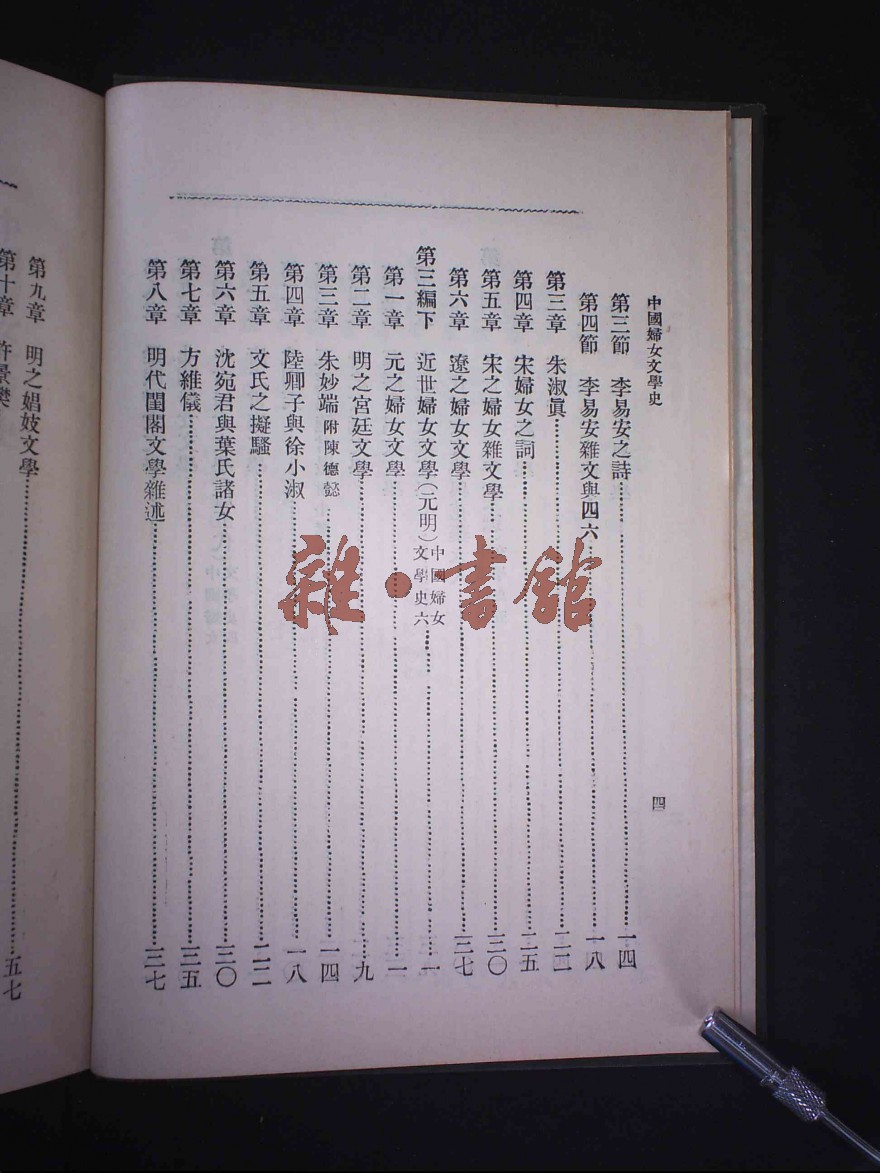 中國婦女文學史
四
第三節 李易安之詩 一四
第四節 李易安雜文與四六 一八
第三章 朱淑眞 二二
第四章 宋婦女之詞 二五
第五章 宋之婦女雜文學 三〇
第六章 遼之婦女文學 三七
第三編下 近世婦女文學(元明)中國婦女文學史六 一
第一章 元之婦女文學 一
第二章 明之宮廷文學 九
第三章 朱妙端附陳德懿 一四
第四章 陸卿子與徐小淑 一八
第五章 文氏之擬騷 二二
第六章 沈宛君與葉氏諸女 三〇
第七章 方維儀 三五
第八章 明代閨閣文學雜述 三七
第九章 明之娼妓文學 五七
第十章 許景樊
雜·書館